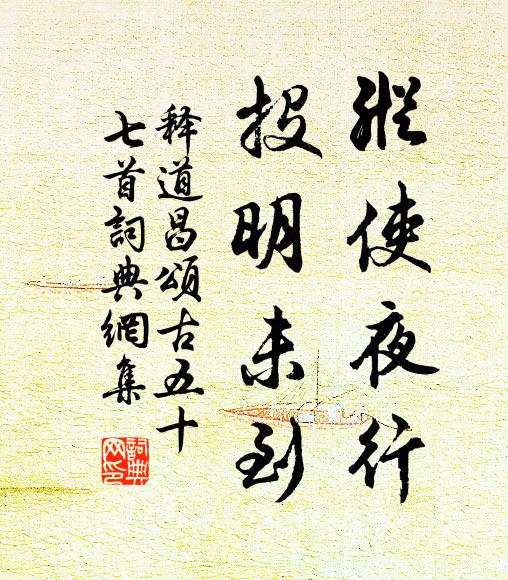 縱使夜行
投明未到
释道昌頌古五十
七首詞典網集
詞典网印